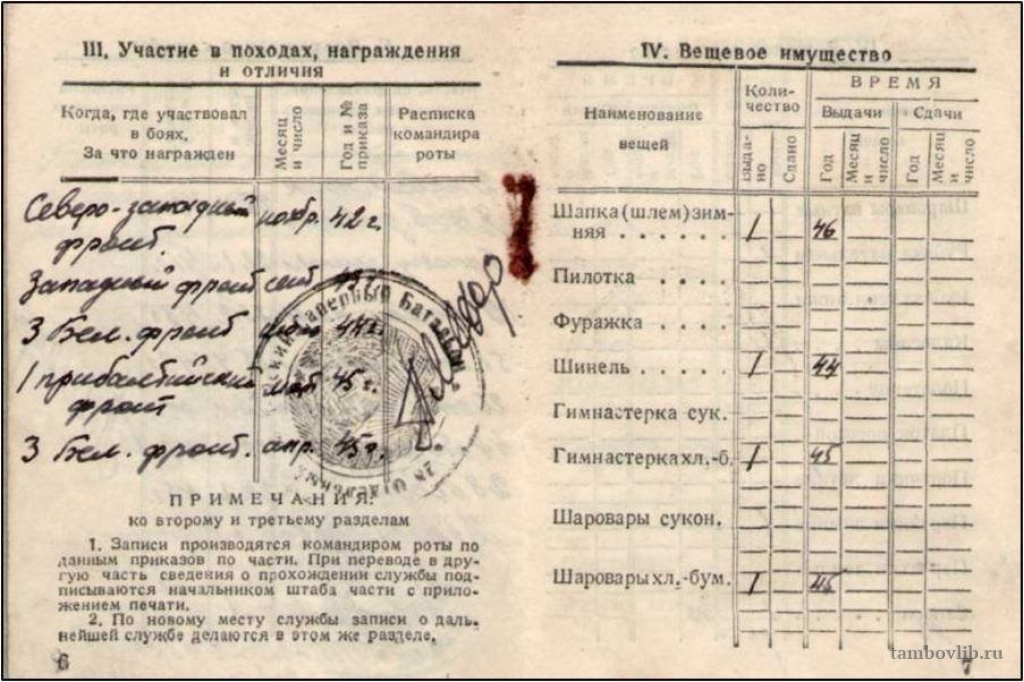 III. Участие в походах, награждения
и отличия
Когда, где участвовал
в боях,
За что награжден
Месяц
и число
Год и №
приказа
Расписка
командира
роты
Северо-западный
фронт.
нояб. 42 г.
Западный фронт
3 Бел. фронт 44 г.
1 прибалтийский 45 г.
фронт
3 Бел. фронт. апр. 45 г.
Саперный Батальон
ПРИМЕЧАНИЯ:
ко второму и третьему разделам
1. Записи производятся командиром роты по
данным приказов по части. При переводе в дру-
гую часть сведения о прохождении службы под-
писываются начальником штаба части с прило-
жением печати.
2. По новому месту службы записи о даль-
нейшей службе делаются в этом же разделе.
6
IV. Вещевое имущество
Наименование
вещей
Коли-
чество
ВРЕМЯ
Выдачи
Сдачи
Выда-
но
Сдано
Год
Месяц
и
число
Год
Месяц
и
число
Шапка (шлем) зим-
няя . . . . . . 1 46
Пилотка . . . .
Фуражка . . . .
Шинель . . . . . 1 44
Гимнастерка сук.
Гимнастерка хл.-б. 1 45
Шаровары сукон.
Шаровары хл.-бум. 1 45
7
tambovlib.ru